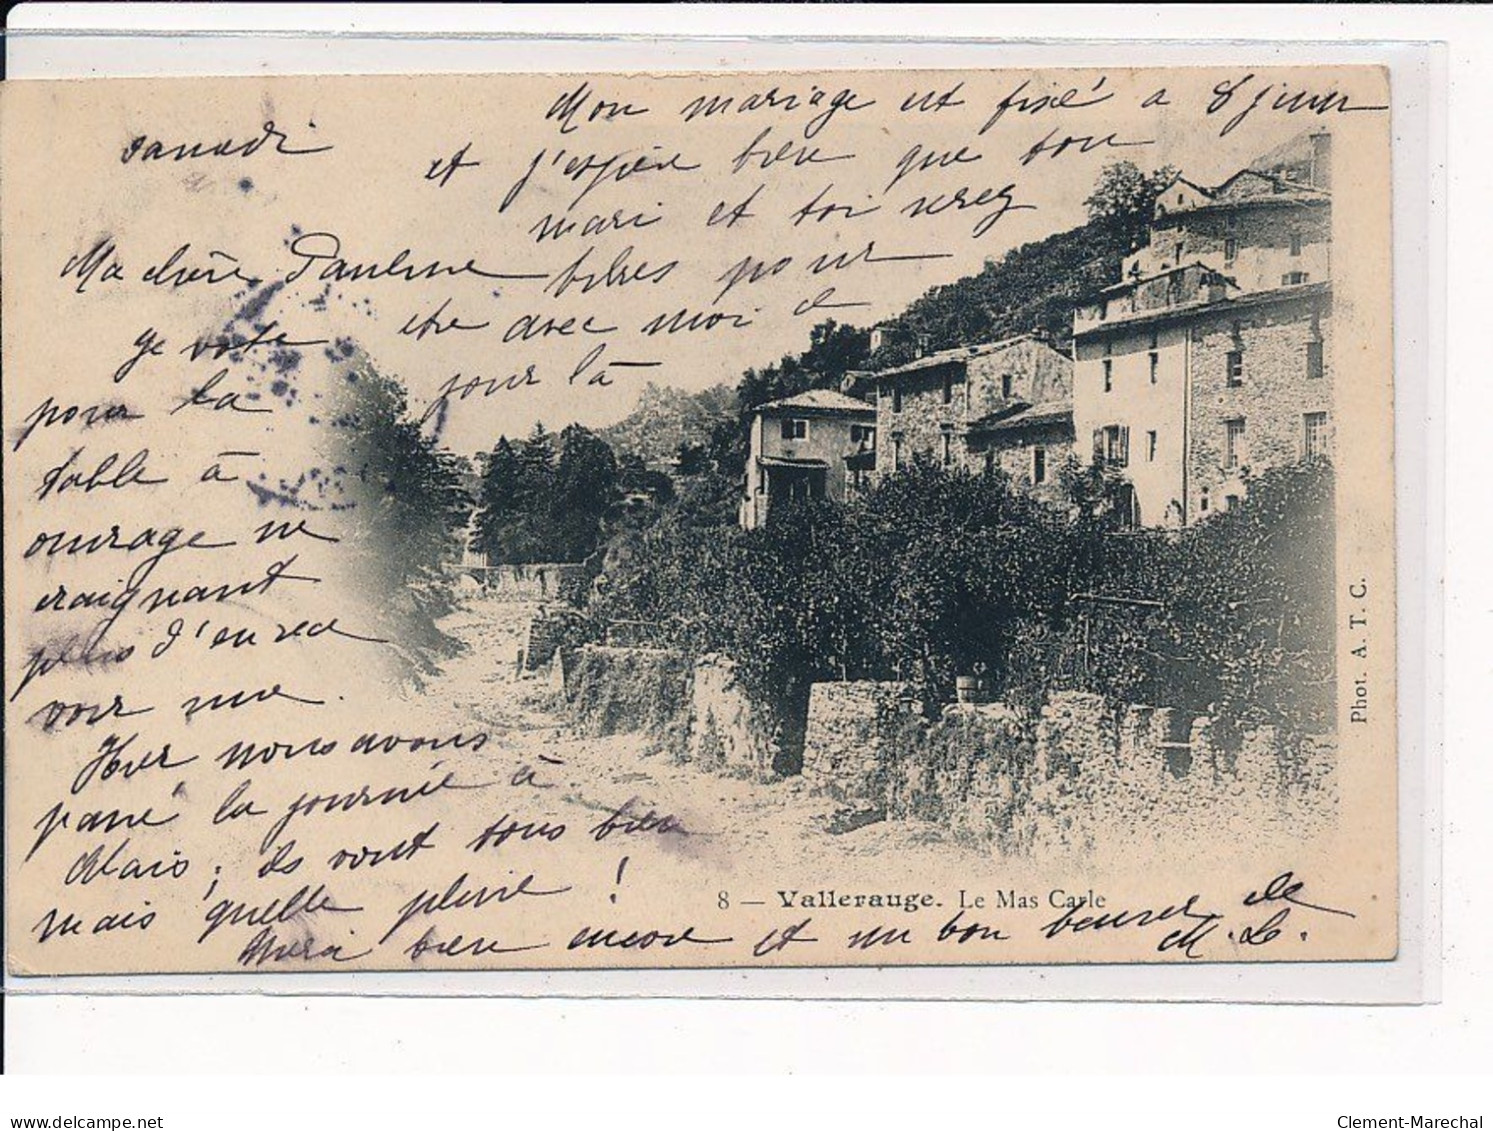 samedi
Ma chère Pauline
je vote
pour la
table à
ouvrage ne
craignant
plus d'en rece
voir une.
Hier nous avons
passé la journée à
Alais ; ils vont tous bien
mais quelle pluie !
Merci bien encore et un bon baiser de
M. L.
Mon mariage est fixé a 8 juin
et j'espère bien que ton
mari et toi serez
libres pour
etre avec moi ce
jour là
8 — Vallerauge. Le Mas Carle
Phot. A. T. C.
Clement-Marechal
delcampe.net